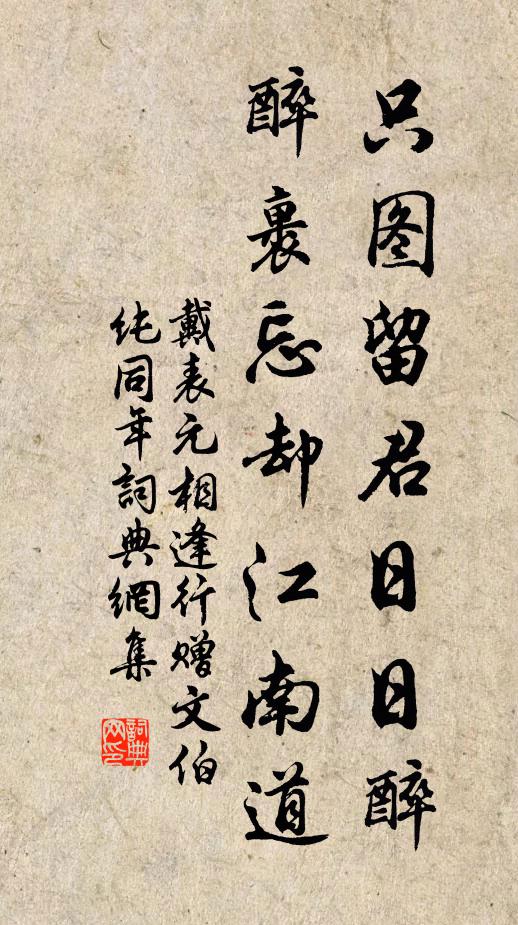 只图留君日日醉
醉裏忘却江南道
戴表元相逢行赠文伯
纯同年詞典網集
詞典
网印